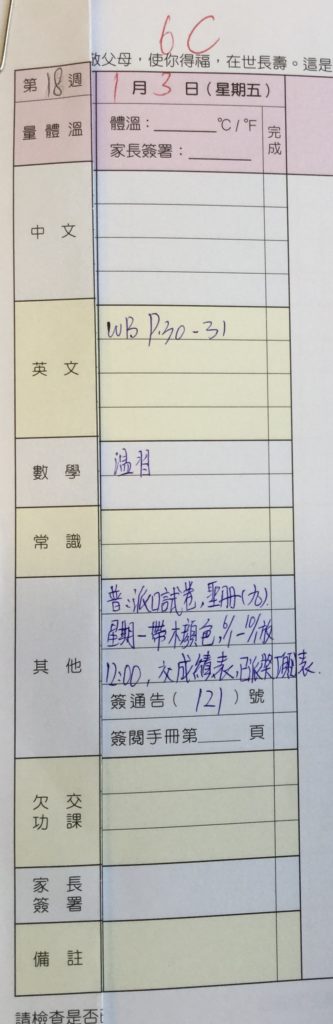 6C
敬父母，使你得福，在世長壽。這是
第18週 1月3日（星期五）
量體溫 體溫：______ °C / °F 完成
家長簽署：______
中文
英文 WB P.30-31
數學 温習
常識
其他 普：派口試卷，聖冊(九)
星期一帶木顏色，6/1-10/1放
12:00，交成績表，已派獎 表.
簽通告（121）號
簽閱手冊第____頁
欠交功課
家長簽署
備註
請檢查是否已